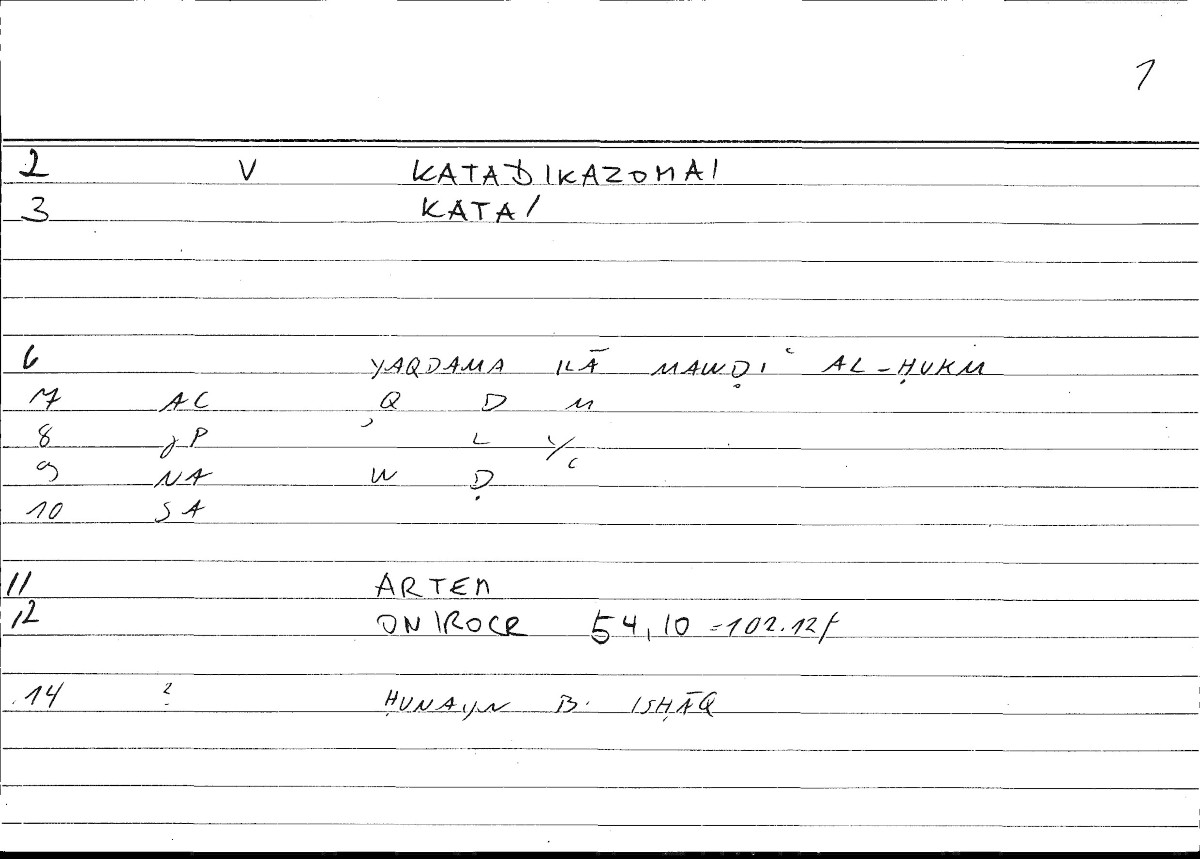 1
2 V KATADIKAZOMAI
3 KATA/
6 YAQDAMA ILĀ MAWḌIʿ AL-ḤUKM
7 AC Q D M
8 gP ʾ L Y/ʿ
9 NA W Ḍ
10 SA
11 ARTEM
12 ONIROCR 54,10 =102.12f
14 ? ḤUNAYN B. ISḤĀQ